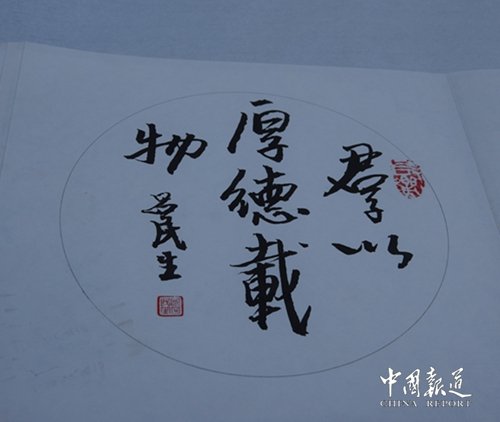 君子以
厚德載
物
中國報道
CHINA REPORT